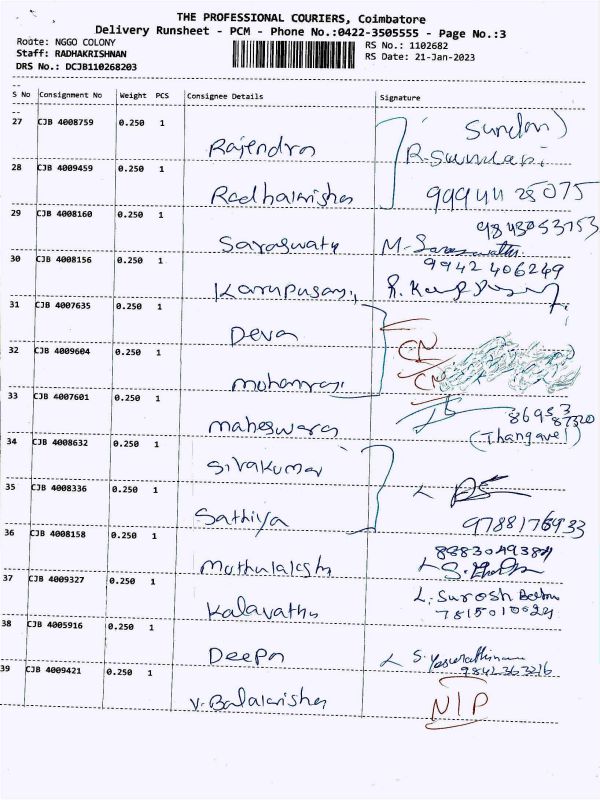 THE PROFESSIONAL COURIERS, Coimbatore
Delivery Runsheet - PCM - Phone No.:0422-3505555 - Page No.:3
Route: NGGO COLONY
RS No.: 1102682
Staff: RADHAKRISHNAN
RS Date: 21-Jan-2023
DRS No.: DCJB110268203
S No Consignment No Weight PCS Consignee Details Signature
27 CJB 4008759 0.250 1 Rajendra
28 CJB 4009459 0.250 1 Radhakrishna
29 CJB 4008160 0.250 1 Saraswaty 9843053753
30 CJB 4008156 0.250 1 Karupusamy 9942406249
31 CJB 4007635 0.250 1 Deva CN
32 CJB 4009604 0.250 1 Mohanraj CN
33 CJB 4007601 0.250 1 Maheswara
(Thangavel)
34 CJB 4008632 0.250 1 Sivakumar
35 CJB 4008336 0.250 1 Sathiya
36 CJB 4008158 0.250 1 Muthulakshi
37 CJB 4009327 0.250 1 Kalavathy
38 CJB 4005916 0.250 1 Deepa
39 CJB 4009421 0.250 1 V. Balakrishna NIP